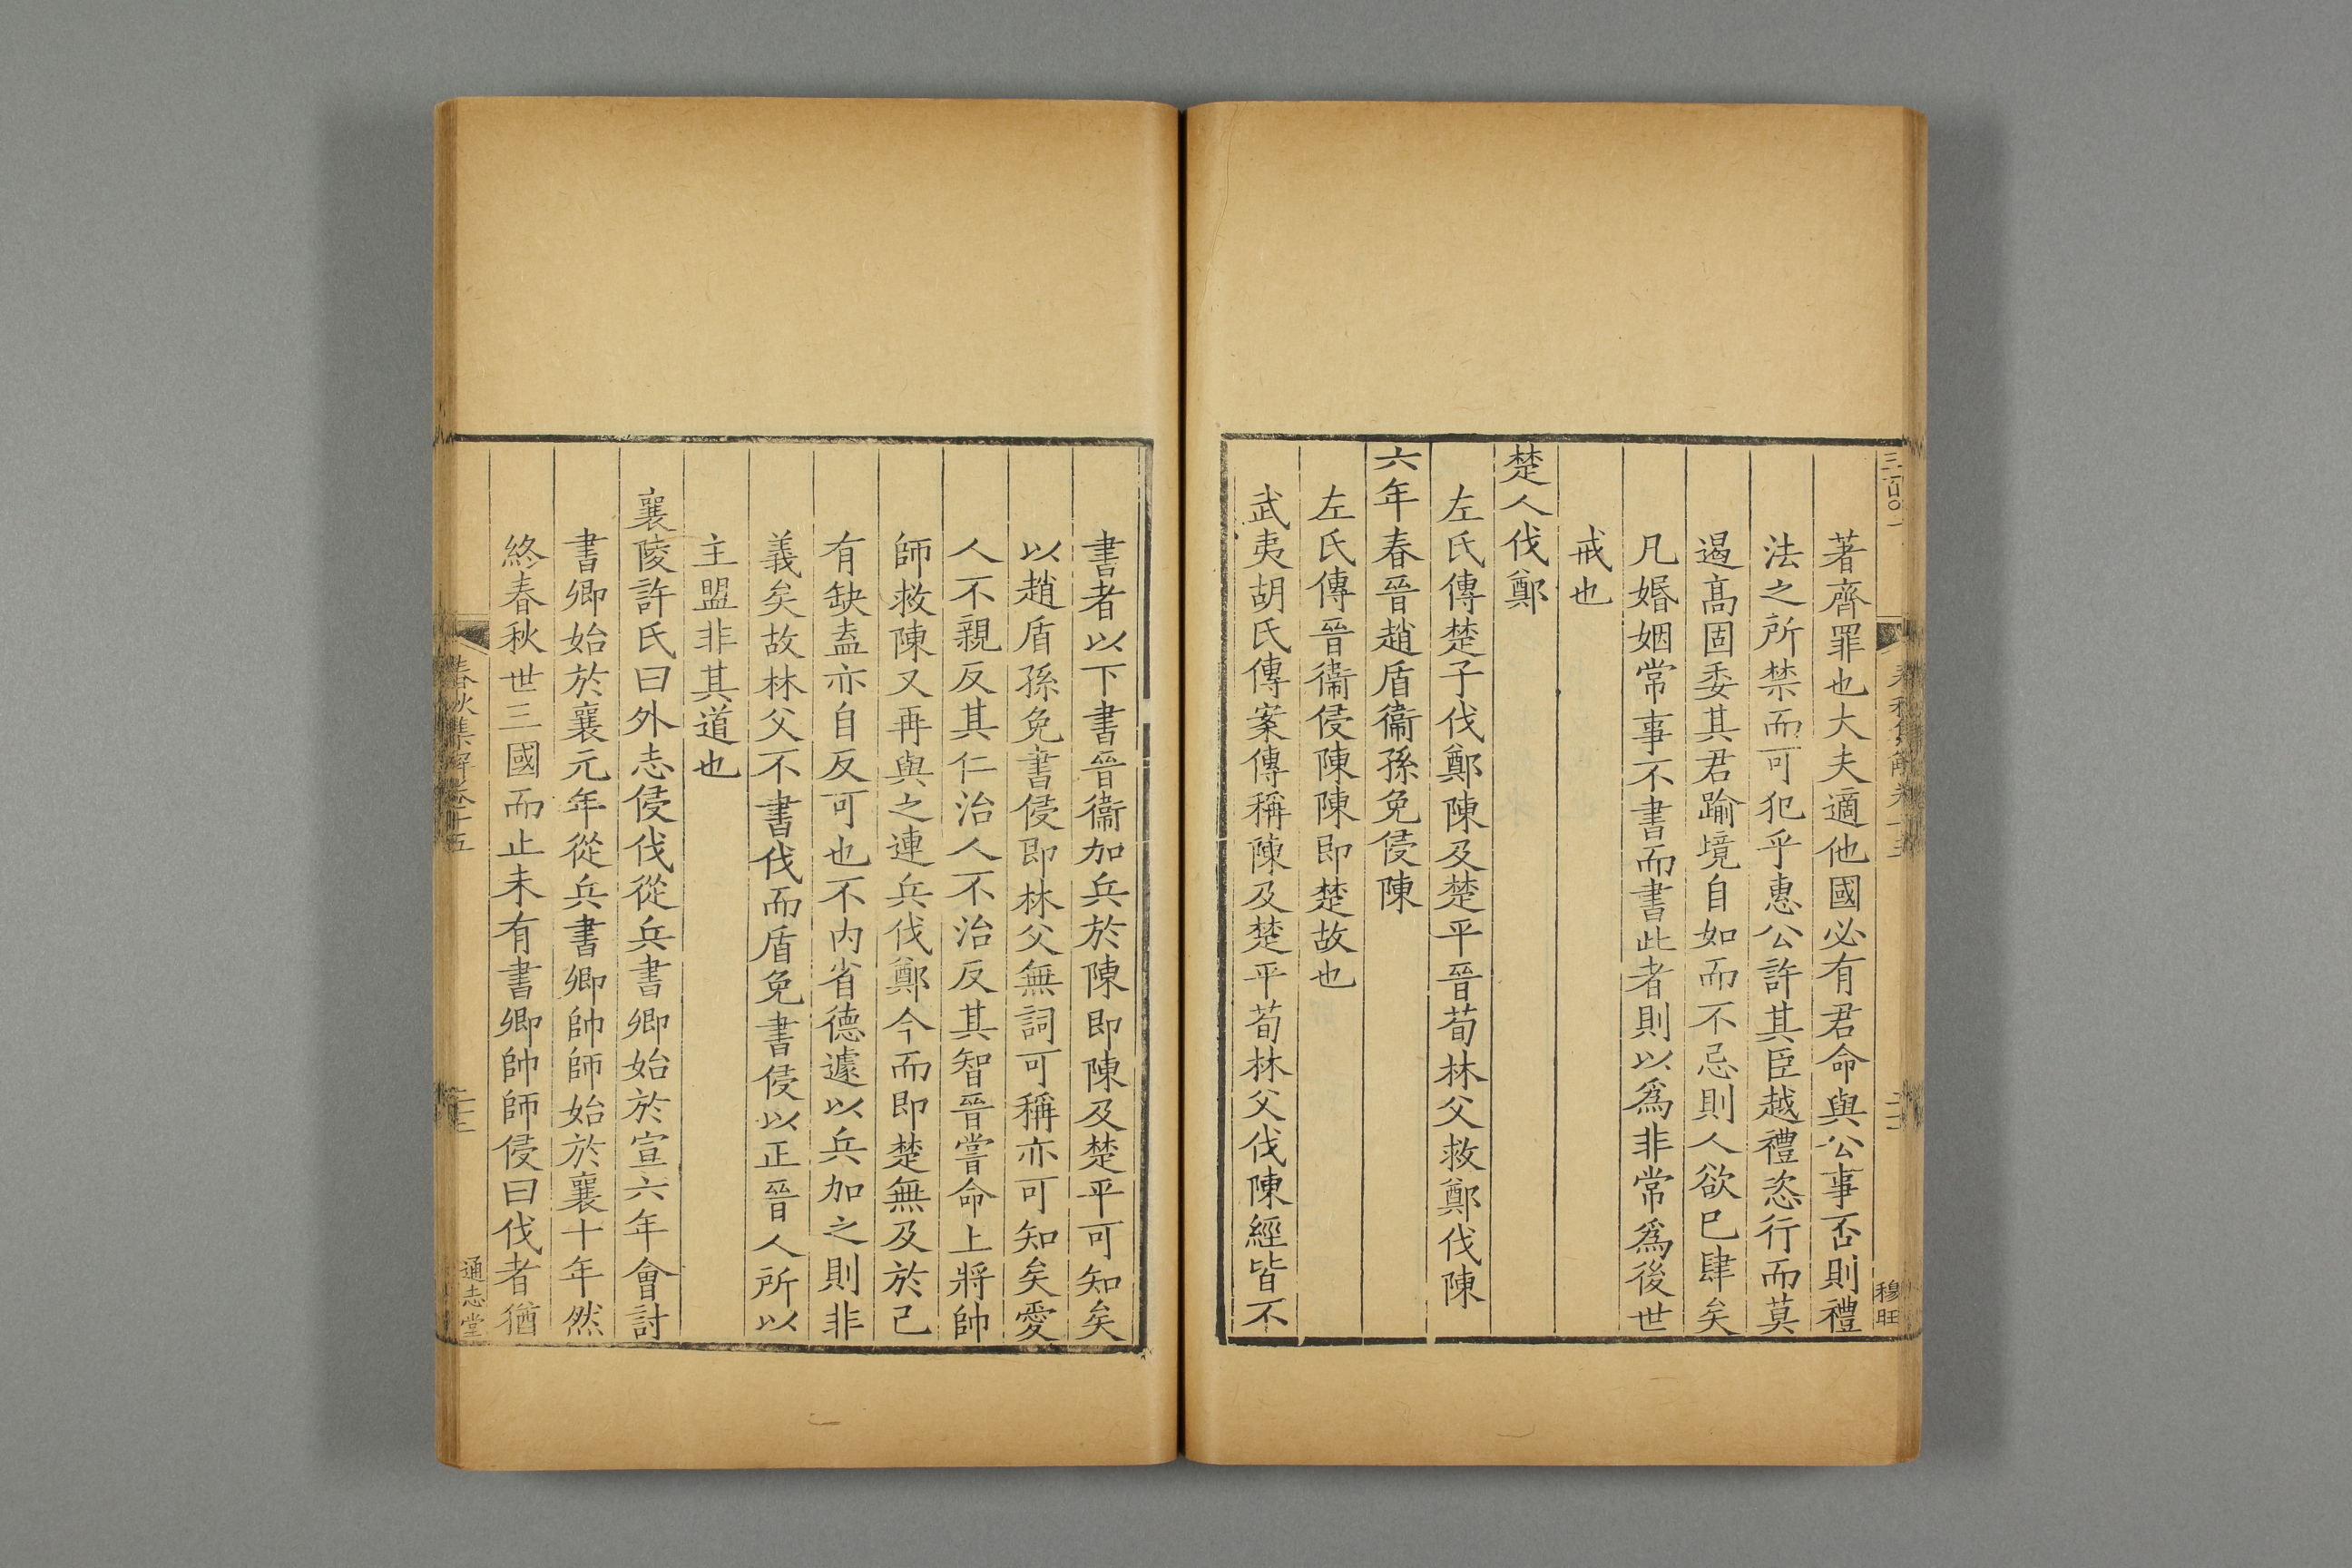 著齊罪也大夫適他國必有君命與公事否則禮
法之所禁而可犯乎惠公許其臣越禮恣行而莫
遏高固委其君踰境自如而不忌則人欲已肆矣
凡婚姻常事不書而書此者則以爲非常爲後世
戒也
楚人伐鄭
左氏傳楚子伐鄭陳及楚平晉荀林父救鄭伐陳
六年春晉趙盾衞孫免侵陳
左氏傳晉衞侵陳陳即楚故也
武夷胡氏傳案傳稱陳及楚平荀林父伐陳經皆不
穆旺
書者以下書晉衞加兵於陳即陳及楚平可知矣
以趙盾孫免書侵即林父無詞可稱亦可知矣愛
人不親反其仁治人不治反其智晉嘗命上將帥
師救陳又再與之連兵伐鄭今而即楚無及於己
有缺盍亦自反可也不內省德遽以兵加之則非
義矣故林父不書伐而盾免書侵以正晉人所以
主盟非其道也
襄陵許氏曰外志侵伐從兵書卿始於宣六年會討
書卿始於襄元年從兵書卿帥師始於襄十年然
終春秋世三國而止未有書卿帥師侵曰伐者猶
春秋集解卷十五
通志堂